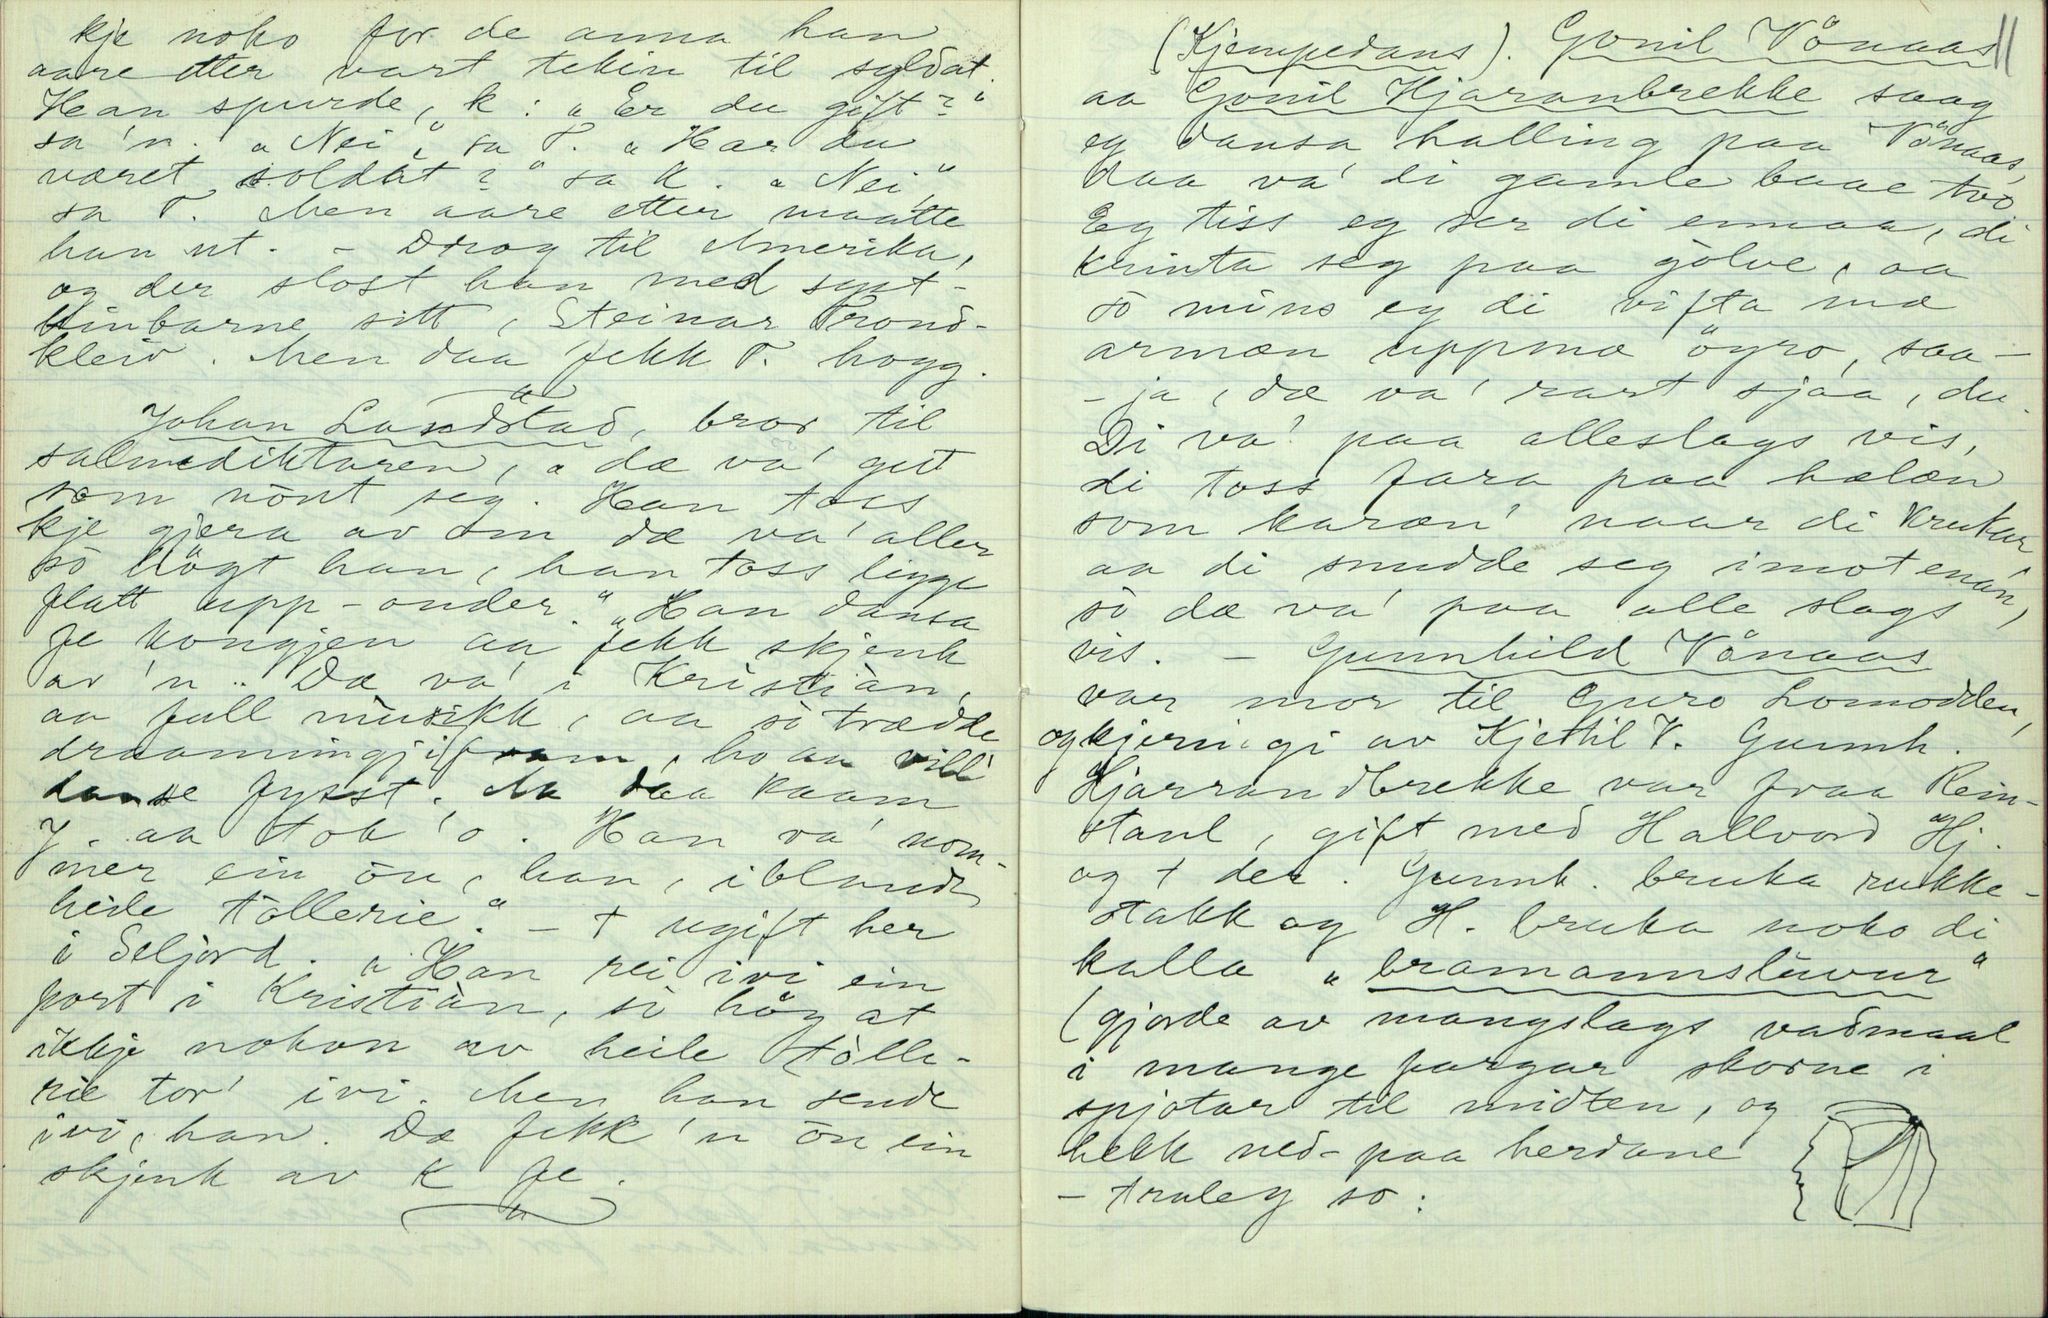 kje noko for de anna han
aare etter vart tekin til syldat.
Han spurde, k: „Er du gift?"
sa 'n. „Nei", sa T. „Har du
været soldat?" sa K. „Nei",
sa T. Men aare etter maatte
han ut. – Drog til Amerika,
og der slost han med syst-
kinbarne sitt, Steinar Trond-
kleiv. Men daa fekk T. hogg.
Johan Landstad, bror til
salmediktaren, „dæ va' gjett
som nönt seg. Han toss
kje gjera av om dæ va' aller
so högt han, han toss ligge
flatt upp-onder." „Han dansa
fe kongjen aa fekk skjenk
av 'n. Dæ va' i Kristiàn,
aa full musikk, aa so trædde
draamingji fram, ho aa vill'
danse fysst. Mæ daa kaam
J. aa tok 'o. Han va' nom-
mer ein ôn, han, iblandt
heile tollerie." – † ugift her
i Seljord. „Han rei ivi ein
port i Kristiàn, so høg at
ikkje nokon av heile tolle-
rie tor' ivi. Men han sende
ivi, han. Dæ fekk 'n ôn ein
skjenk av K fe.
11
(Kjempedans). Gonil Vönaas
aa Gonil Hjaranbrekke saag
eg dansa halling paa Vönaas,
daa va' di gamle baae tvo
Eg tiss eg ser di ennaa, di
krinta seg paa gölve, aa
so mins eg di vifta mæ
armæn uppmæ öyro, saa –
– ja, dæ va' rart sjaa, du.
Di va' paa alleslags vis,
di toss fara paa hælæn
som karæn' naar di krukar
aa di snudde seg imot enan,
so dæ va' paa alle slags
vis. – Gunnhild Vönaas
var mor til Guro Lomodden,
og kjeringi av Kjettil V. Gunnh.
Hjarrandbrekke var fraa Rein-
staul, gift med Hallvord Hj.
og † der. Gunnh. bruka rukke-
stakk og H. bruka noko di
kalla „bramannslùvur"
(gjorde av mangslags vadmaal
i mange fargar skorne i
spjotar til midten, og
hekk ned-paa herdane
– truleg so: